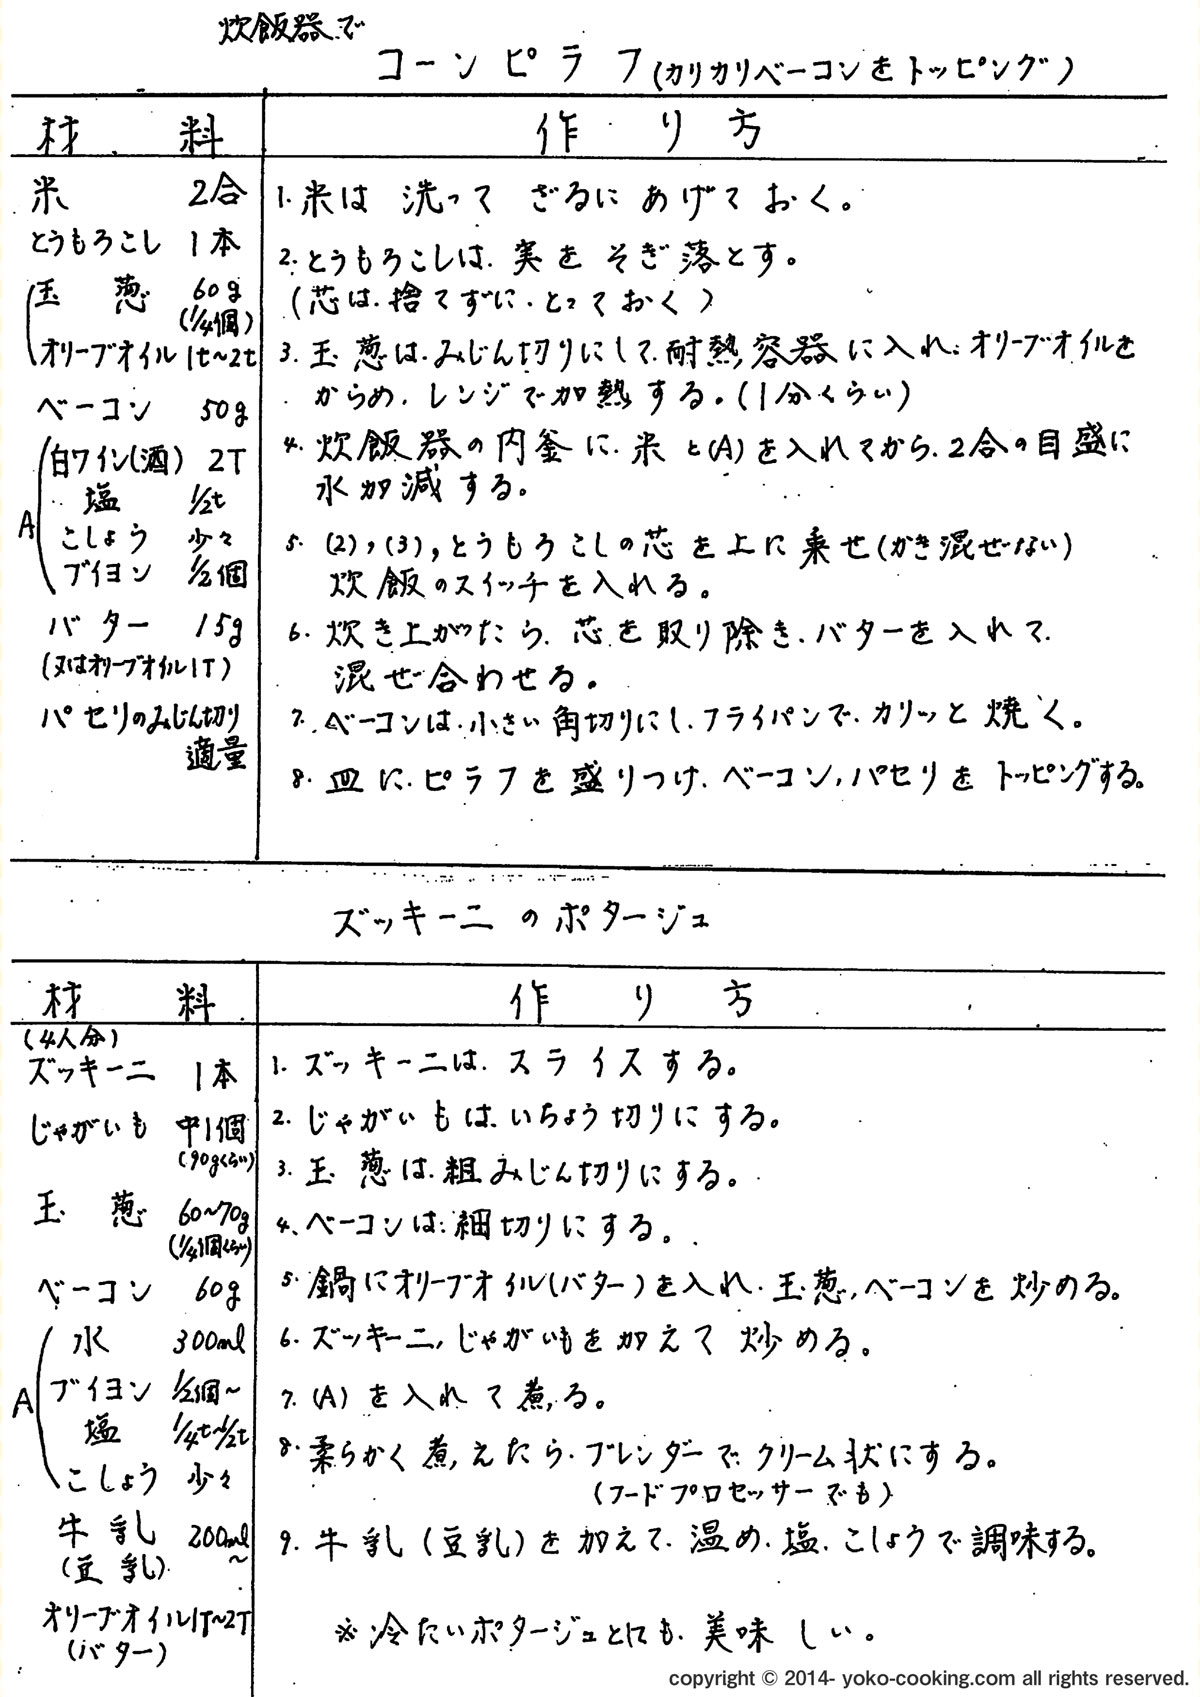 炊飯器で
コーンピラフ(カリカリベーコンをトッピング)
材料
作り方
米 2合
とうもろこし 1本
玉葱 60g
(1/4個)
オリーブオイル 1t~2t
ベーコン 50g
A
白ワイン(酒) 2T
塩 1/2t
こしょう 少々
ブイヨン 1/2個
バター 15g
(又はオリーブオイル1T)
パセリのみじん切り
適量
1. 米は洗ってざるにあげておく。
2. とうもろこしは、実をそぎ落とす。
(芯は、捨てずに、とっておく)
3. 玉葱は、みじん切りにして、耐熱容器に入れ、オリーブオイルを
からめ、レンジで加熱する。(1分くらい)
4. 炊飯器の内釜に、米と(A)を入れてから、2合の目盛に
水加減する。
5. (2),(3),とうもろこしの芯を上に乗せ(かき混ぜない)
炊飯のスイッチを入れる。
6. 炊き上がったら、芯を取り除き、バターを入れて、
混ぜ合わせる。
7. ベーコンは、小さい角切りにし、フライパンで、カリッと焼く。
8. 皿に、ピラフを盛りつけ、ベーコン,パセリをトッピングする。
ズッキーニのポタージュ
材料
作り方
(4人分)
ズッキーニ 1本
じゃがいも 中1個
(90gくらい)
玉葱 60~70g
(1/4個くらい)
ベーコン 60g
A
水 300ml
ブイヨン 1/2個~
塩 1/4t~1/2t
こしょう 少々
牛乳 200ml~
(豆乳)
オリーブオイル 1T~2T
(バター)
1. ズッキーニは、スライスする。
2. じゃがいもは、いちょう切りにする。
3. 玉葱は、粗みじん切りにする。
4. ベーコンは、細切りにする。
5. 鍋にオリーブオイル(バター)を入れ、玉葱,ベーコンを炒める。
6. ズッキーニ,じゃがいもを加えて炒める。
7. (A)を入れて煮る。
8. 柔らかく煮えたら、ブレンダーで、クリーム状にする。
(フードプロセッサーでも)
9. 牛乳(豆乳)を加えて、温め、塩、こしょうで調味する。
※冷たいポタージュとしても、美味しい。
copyright © 2014- yoko-cooking.com all rights reserved.